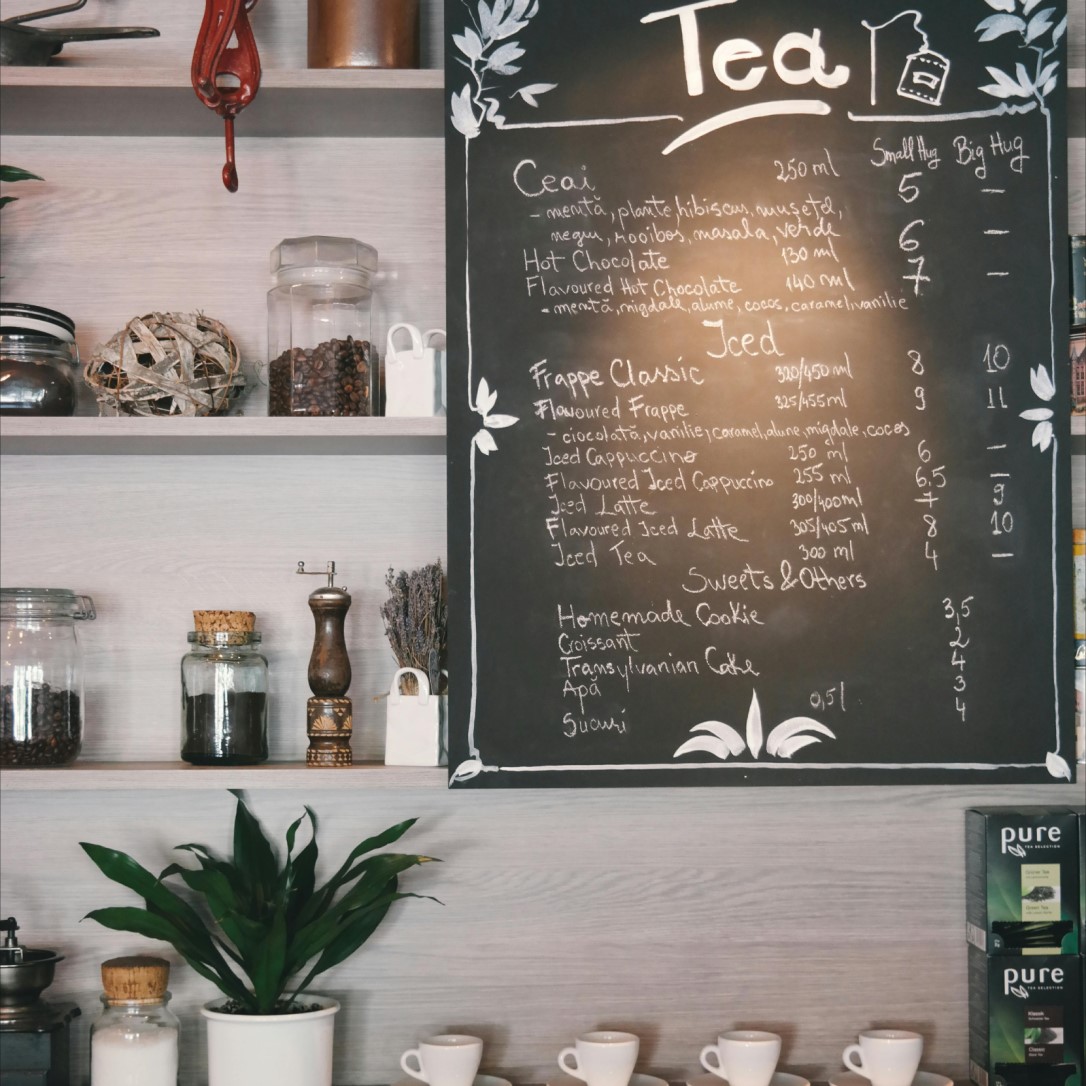 Tea
Small Hug Big Hug
Ceai 250 ml 5 –
- mentă, plante, hibiscus, mușețel,
negru, rooibos, masala, verde
Hot Chocolate 130 ml 6 –
Flavoured Hot Chocolate 140 ml 7 –
- mentă, migdale, alune, cocos, caramel, vanilie
Iced
Frappe Classic 320/450 ml 8 10
Flavoured Frappe 325/455ml 9 11
- ciocolată, vanilie, caramel, alune, migdale, cocos
Iced Cappuccino 250 ml 6 –
Flavoured Iced Cappuccino 255 ml 6,5 –
Iced Latte 300/400ml 7 9
Flavoured Iced Latte 305/405 ml 8 10
Iced Tea 300 ml 4 –
Sweets & Others
Homemade Cookie 3,5
Croissant 2
Transylvanian Cake 4
Apă 0,5l 3
Sucuri 4
pure
TEA SELECTION
Green Tea
pure
TEA SELECTION
Klassik
Classic